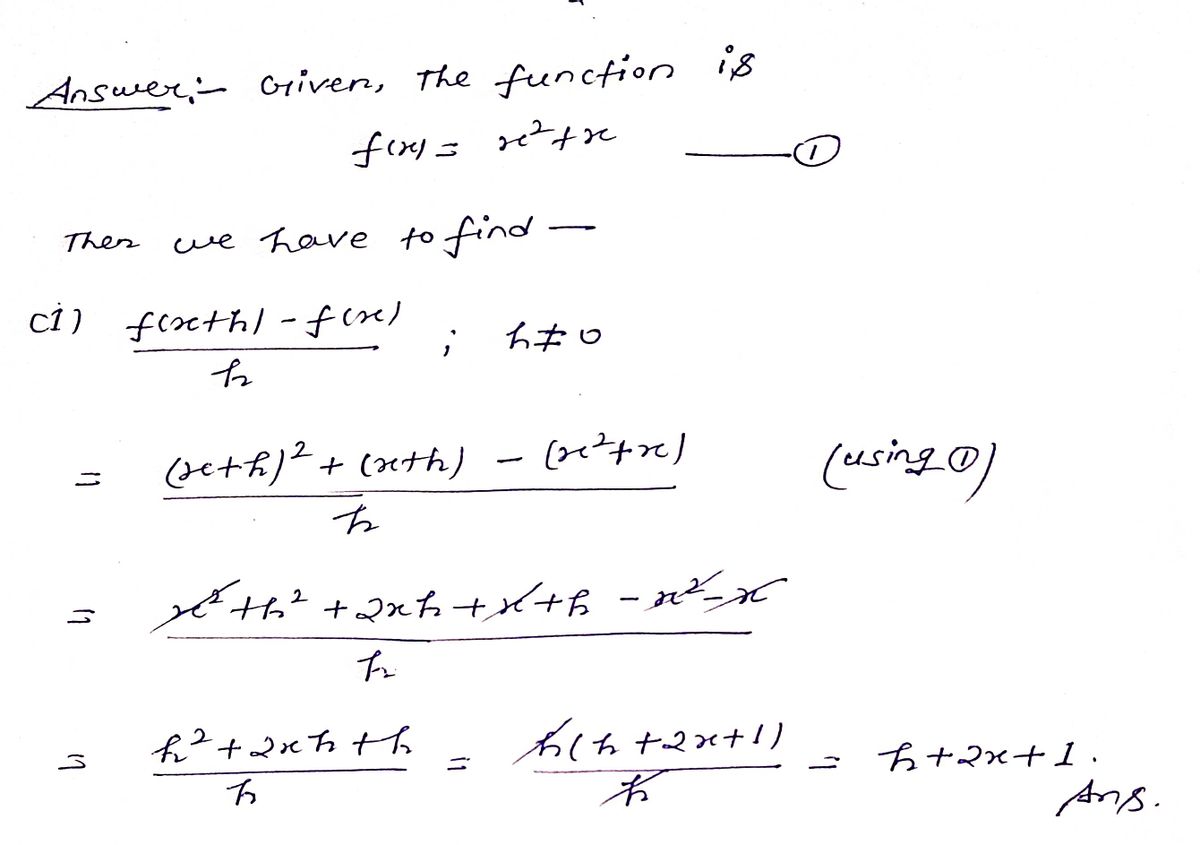 Answer:- Given, The function is
f(x) = x²+x ——①
Then we have to find —
(i) f(x+h) - f(x) / h ; h≠0
= (x+h)² + (x+h) - (x²+x) / h (using ①)
= x² + h² + 2xh + x + h - x² - x / h
= h² + 2xh + h / h = h(h+2x+1) / h = h+2x+1.
Ans.